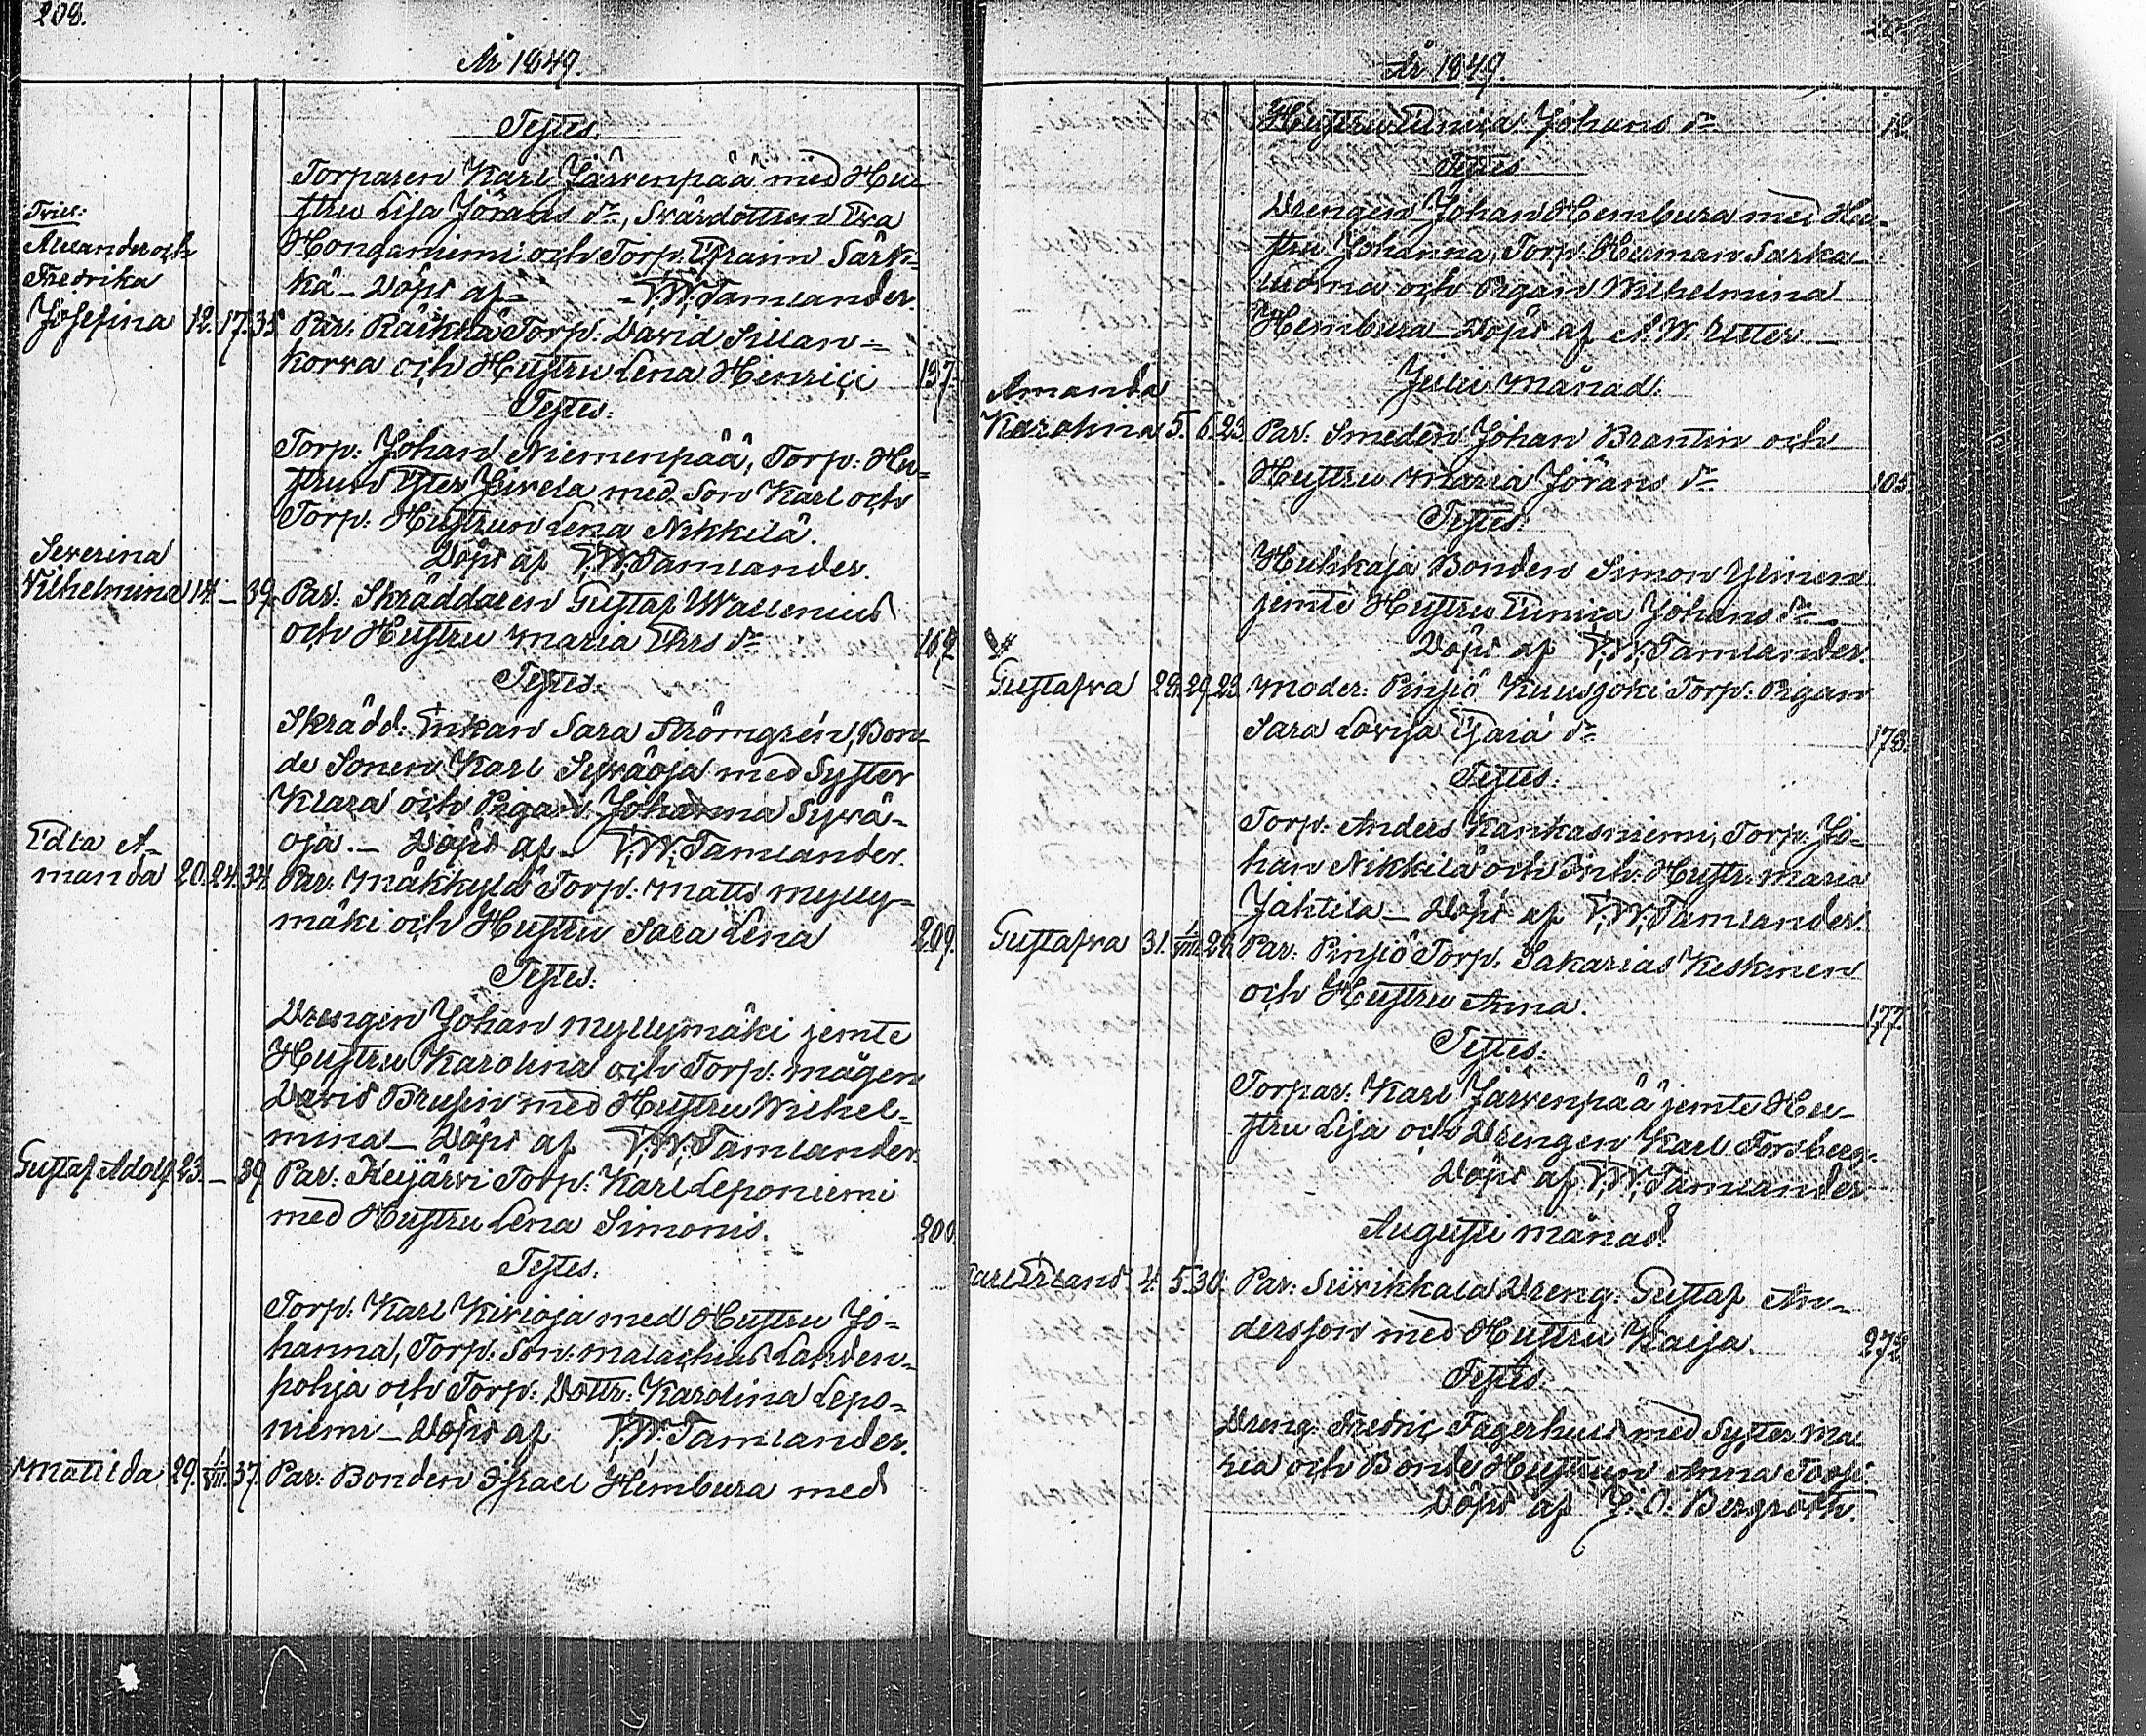 208.
År 1849.
Testes.
Torparen Karl Järvenpää med Hu-
stru Lisa Jörans dr, Svärdottren Eva
Honganiemi och Torp. Efraim Särk-
kä - Döpt af - T.W. Tamlander.
Tvill:
Alexander och
Fredrika
Josefina 12. 17. 35. Par: Räikkä Torp: David Sillan-
korva och Hustru Lena Henrici 137.
Testes:
Torp: Johan Niemenpää, Torp: Hu-
strun Ester Juvela med Son Karl och
Torp: Hustrun Lena Nikkilä.
Döpt af T.W. Tamlander.
Severina
Vilhelmina 14. - 39. Par. Skräddaren Gustaf Wallenius
och Hustru Maria Ehrs dr 162
Testes:
Skrädd: Enkan Sara Strömgrén, Bon-
de Sonen Karl Syväoja med Syster
Klara och Pigan Johanna Syvä-
oja. - Döpt af - T.W. Tamlander.
Edla A-
manda 20. 24. 34. Par: Mäkkylä Torp: Matts Mylly-
mäki och Hustru Sara Lena 209.
Testes:
Drengen Johan Myllymäki jemte
Hustru Karolina och Torp: mågen
David Brusin med Hustru Wilhel-
mina - Döpt af T.W. Tamlander.
Gustaf Adolf 23. - 39 Par: Keyärvi Torp: Karl Leponiemi
med Hustru Lena Simonis. 200.
Testes:
Torp: Karl Kivioja med Hustru Jo-
hanna, Torp: Son: Malachius Landen-
pohja och Torp: Dottr: Karolina Lepo-
niemi - Döpt af T.W. Tamlander.
Matilda 29. 1/VII. 37. Par: Bonden Israel Hembura med
År 1849.
Hustru Eunica Johans dr 12.
Testes
Drengen Johan Hembura med Hu-
stru Johanna, Torp: Herman Sarka-
luoma och Pigan Wilhelmina
Hembura - Döpt af A.W. Etter -
Julii Månad:
Amanda
Karolina 5. 6. 23. Par: Smeden Johan Brantin och
Hustru Maria Jörans dr 105.
Testes:
Huhkaja Bonden Simon Ylinen
jemte Hustru Eunica Johans dr -
Döpt af T.W. Tamlander.
Gustafva 28. 29. 23. Moder: Pinsiö Kuusjoki Torp: Pigan
Sara Lovisa Esaiæ dr 178.
Testes:
Torp: Anders Kankasniemi, Torp: Jo-
han Nikkilä och Inh. Hustr: Maria
Jahtila - Döpt af T.W. Tamlander.
Gustafva 31. 1/VIII. 29. Par: Pinsiö Torp: Sakarias Keskinen
och Hustru Anna. 177.
Testes:
Torpar: Karl Järvenpää jemte Hu-
stru Lisa och Drengen Karl Forsberg.
Döpt af T.W. Tamlander
Augusti månad.
Karl Erland. 4. 5. 30. Par: Siivikkala Dreng: Gustaf An-
dersson med Hustru Kaisa. 272
Testes:
Dreng: Fredric Fagerhus med Syster Ma-
ria och Bonde Hustrun Anna
Döpt af J.O. Bergroth.